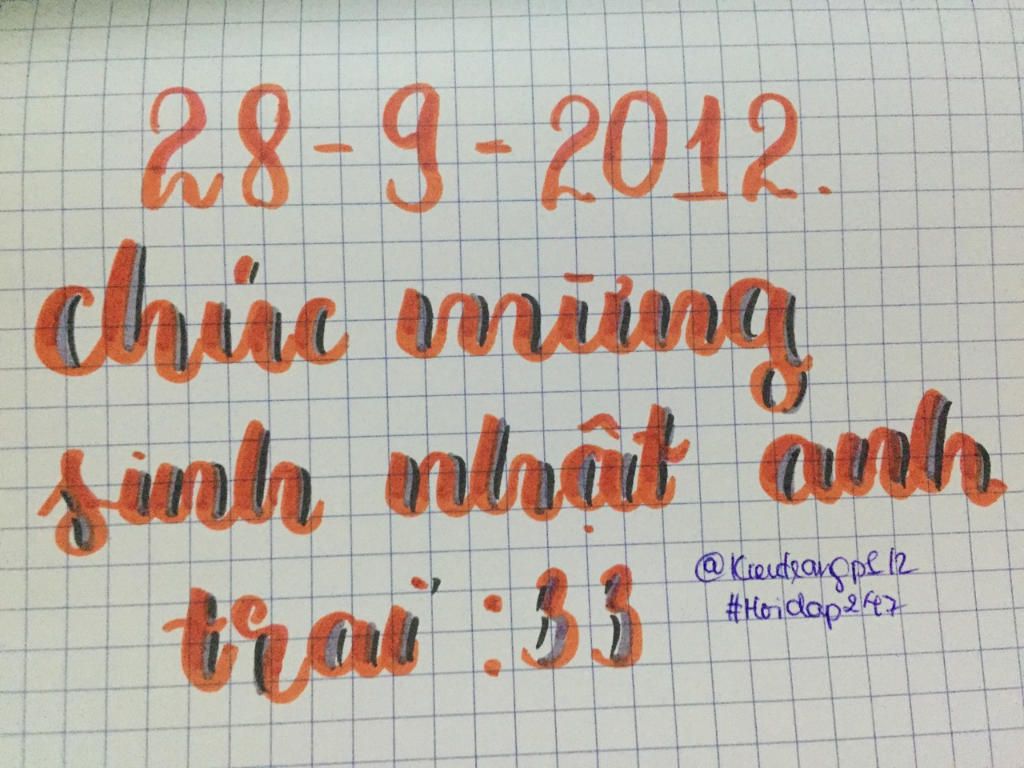 28-9-2012.
chúc mừng
sinh nhật anh
trai :33
#Hoidap247